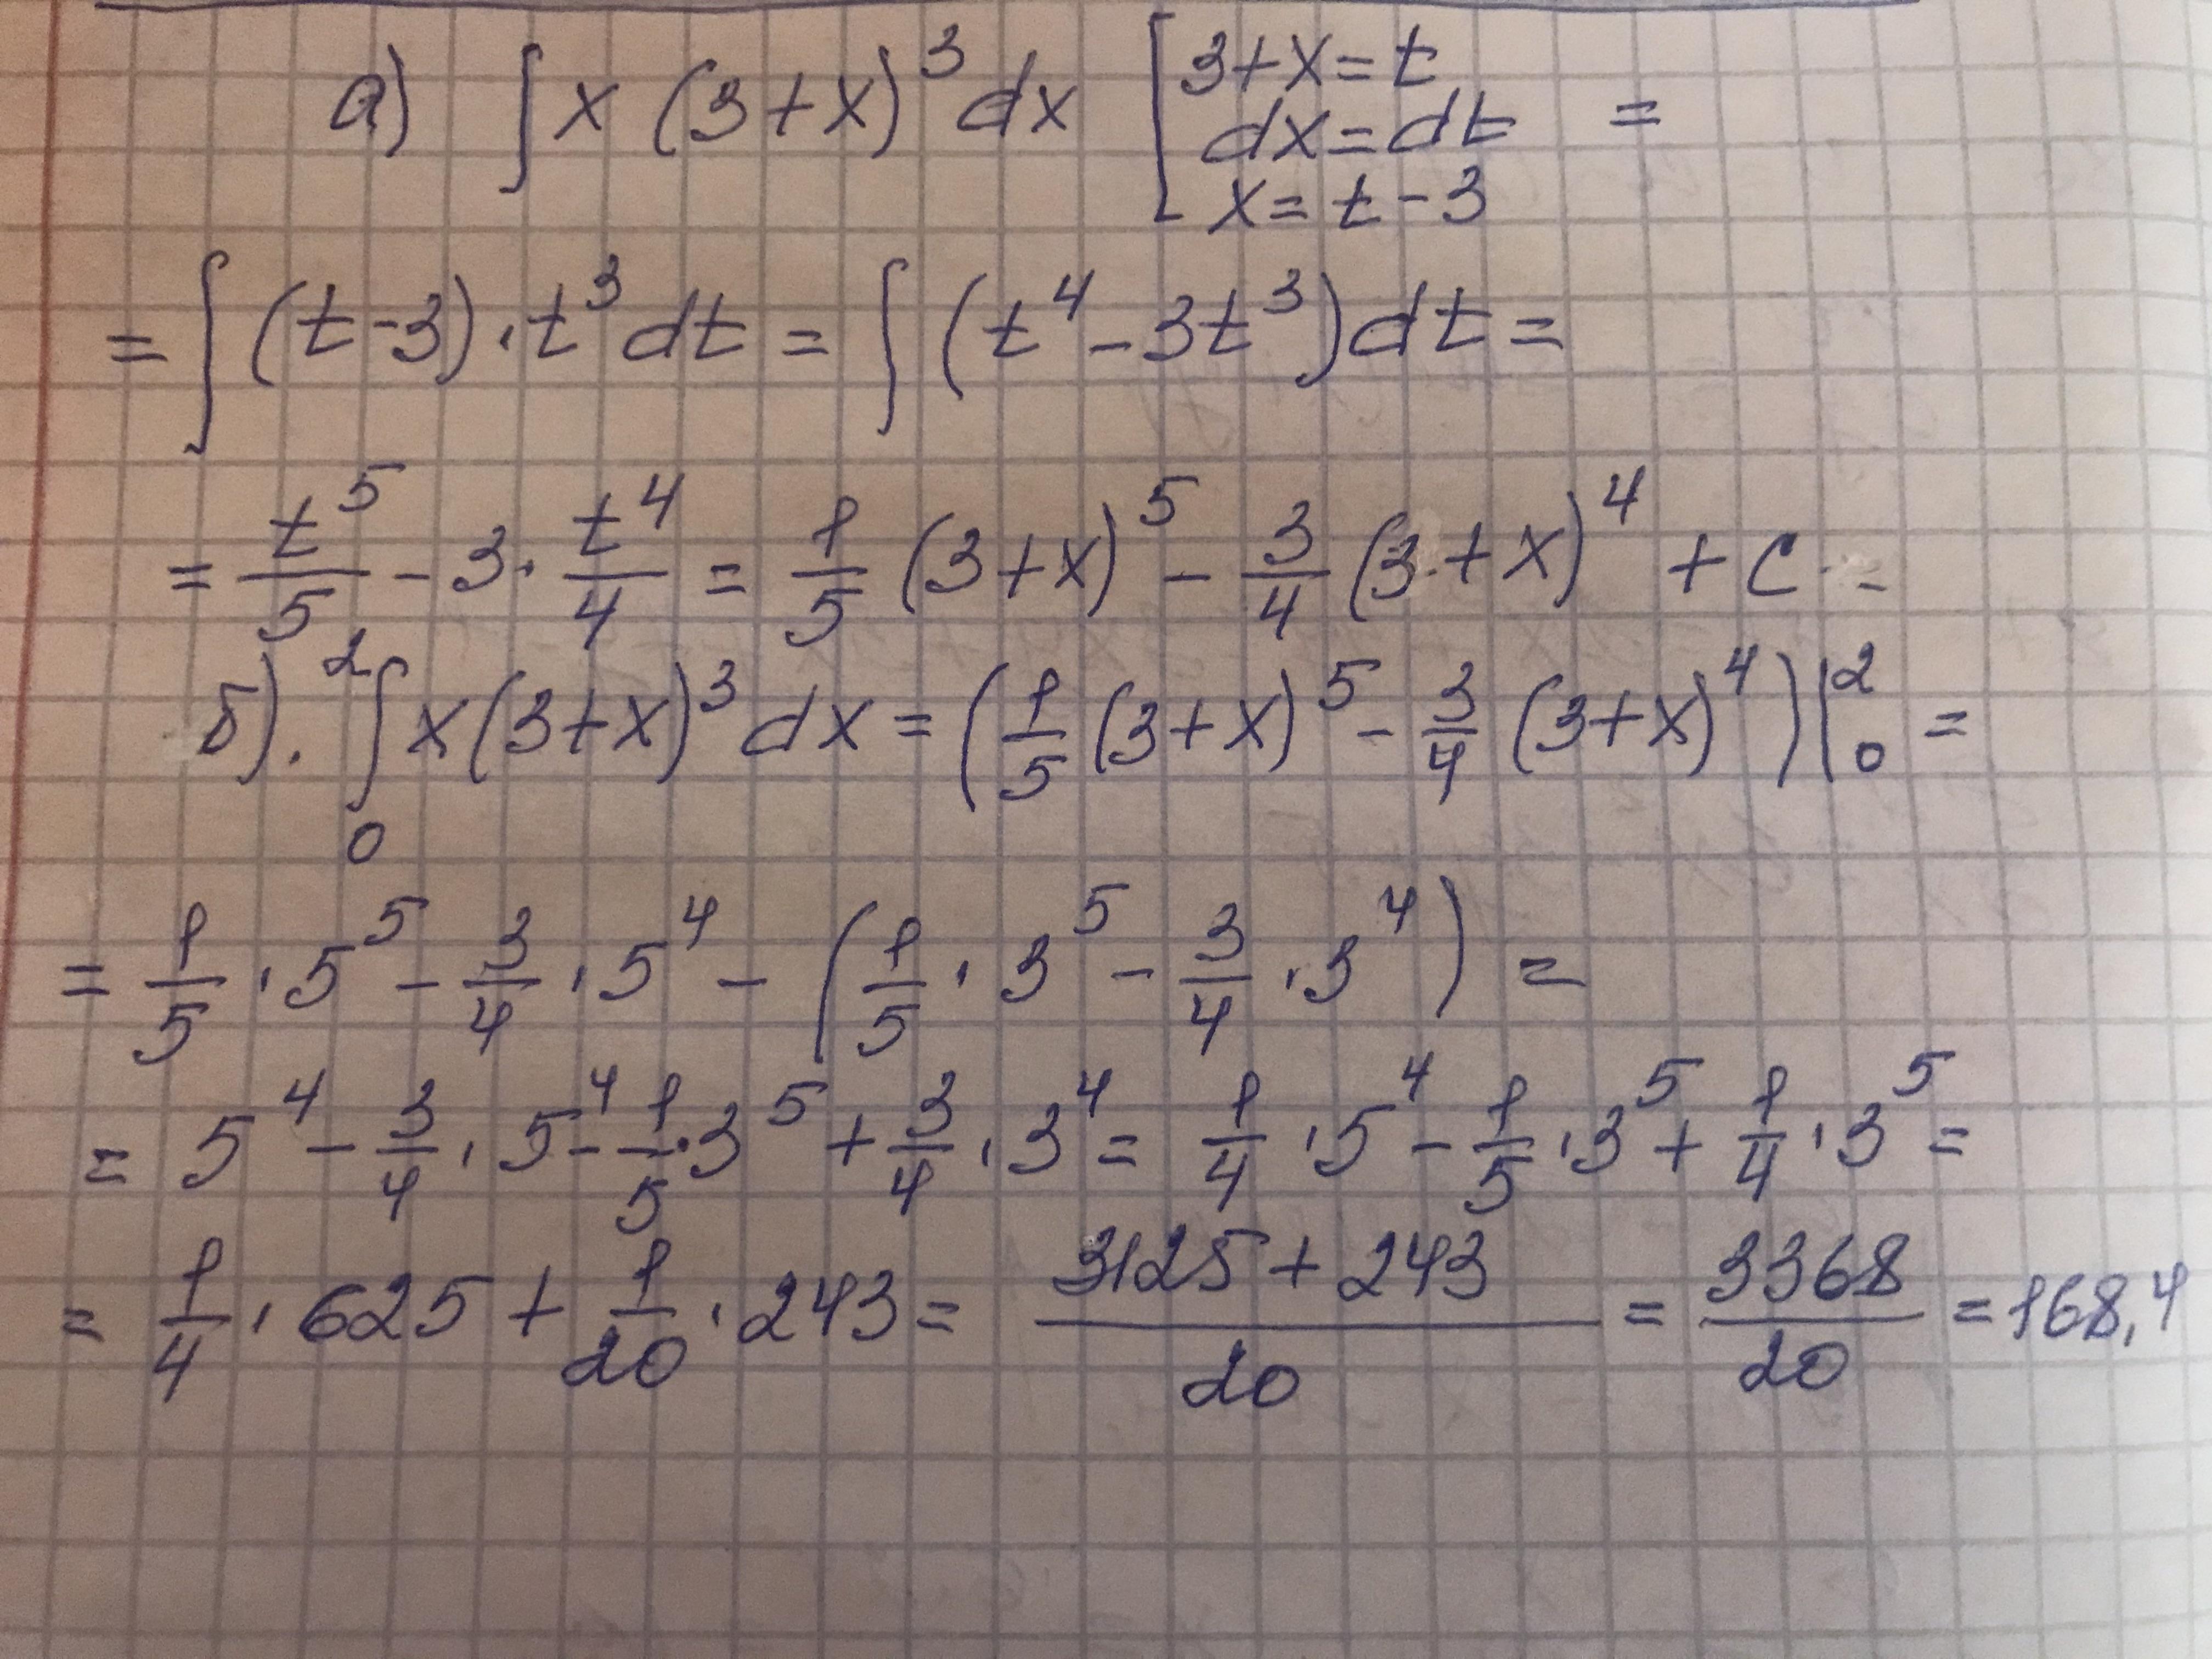 а) ∫ x (3+x)³ dx [3+x=t =
dx=dt
x=t-3
= ∫ (t-3)·t³ dt = ∫ (t⁴-3t³) dt =
= t⁵/5 - 3·t⁴/4 = 1/5 (3+x)⁵ - 3/4 (3+x)⁴ + C
б). ₀²∫ x(3+x)³ dx = (1/5 (3+x)⁵ - 3/4 (3+x)⁴)|₀² =
= 1/5 · 5⁵ - 3/4 · 5⁴ - (1/5 · 3⁵ - 3/4 · 3⁴) =
= 5⁴ - 3/4 · 5⁴ - 1/5 · 3⁵ + 3/4 · 3⁴ = 1/4 · 5⁴ - 1/5 · 3⁵ + 1/4 · 3⁵ =
= 1/4 · 625 + 1/20 · 243 = (3125 + 243)/20 = 3368/20 = 168,4